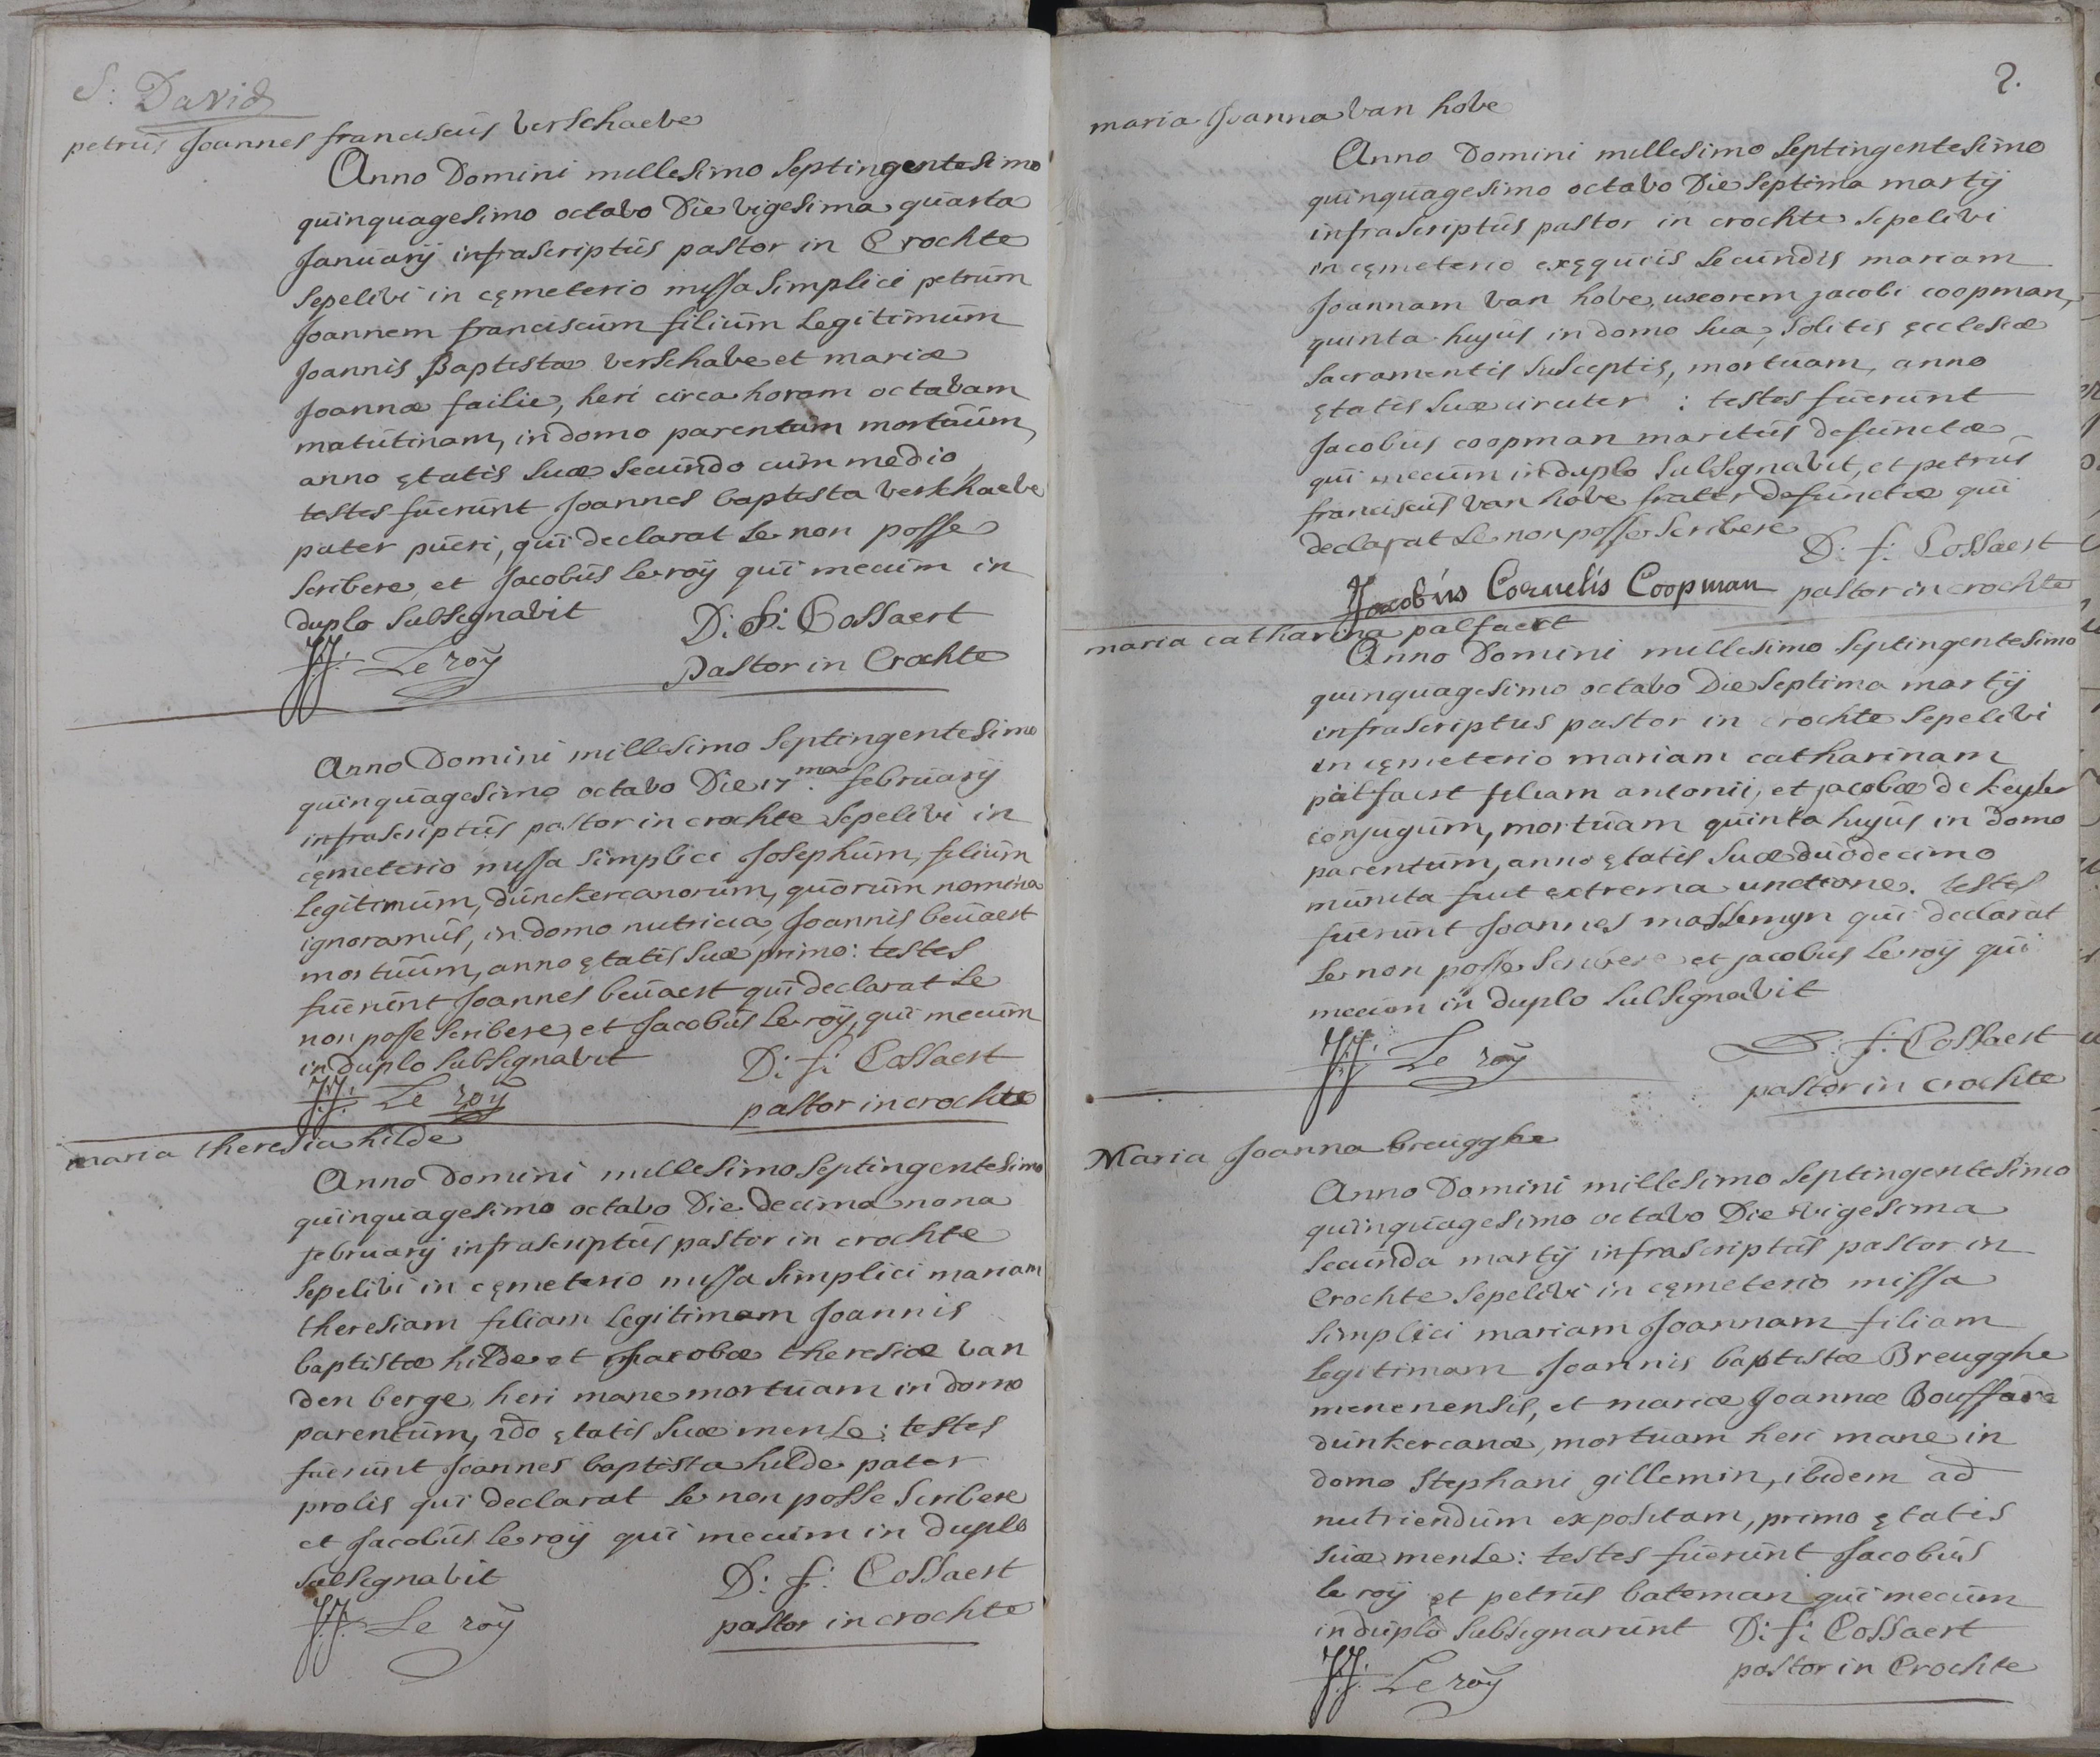 S: David
petrus Joannes franciscus verschaeve
Anno Domini millesimo septingentesimo
quinquagesimo octavo Die vigesima quarta
Januarij infrascriptus pastor in Crochte
sepelivi in cęmeterio missa simplici petrum
Joannem franciscum filium legitimum
Joannis Baptistæ verschave et mariæ
Joannæ failie, heri circa horam octavam
matutinam, in domo parentum mortuum,
anno ętatis suæ secundo cum medio
testes fuerunt Joannes baptista verschaeve
pater pueri, qui declarat se non posse
scribere, et Jacobus leroÿ qui mecum in
duplo subsignavit
D: f: Cossaert
J.J: Le roÿ
Pastor in Crochte
Anno Domini millesimo septingentesimo
quinquagesimo octavo Die 17.ma februarij
infrascriptus pastor in crochte sepelivi in
cęmeterio missa simplici Josephum, filium
legitimum, dunckercanorum, quorum nomina
ignoramus, in domo nutricia, Joannis beuaert
mortuum, anno ętatis suæ primo: testes
fuerunt Joannes beuaert qui declarat se
non posse scribere, et Jacobus leroÿ, qui mecum
in duplo subsignavit
D: f: Cossaert
J.J: Le roÿ
pastor in crochte
maria theresia hilde
Anno Domini millesimo septingentesimo
quinquagesimo octavo Die decima nona
februarij infrascriptus pastor in crochte
sepelivi in cęmeterio missa simplici mariam
theresiam filiam legitimam Joannis
baptistæ hilde et Jacobæ theresiæ van
den berge, heri mane mortuam in domo
parentum, 2do ętatis suæ mense: testes
fuerunt Joannes baptista hilde pater
prolis qui declarat se non posse scribere
et Jacobus leroÿ qui mecum in duplo
subsignavit
D: f: Cossaert
J.J: Le roÿ
pastor in crochte
2.
maria Joanna van hove
Anno Domini millesimo septingentesimo
quinquagesimo octavo Die septima martij
infrascriptus pastor in crochte sepelivi
in cęmeterio exęquiis secundis mariam
Joannam van hove, uxorem jacobi coopman,
quinta hujus in domo sua, solitis ęcclesiæ
sacramentis susceptis, mortuam, anno
ętatis suæ circiter : testes fuerunt
Jacobus coopman maritus defunctæ
qui mecum in duplo subsignavit, et petrus
franciscus van hove frater defunctæ qui
declarat se non posse scribere
D: f: Cossaert
Jacobus Cornelis Coopman
pastor in crochte
maria catharina palfaert
Anno Domini millesimo septingentesimo
quinquagesimo octavo Die septima martij
infrascriptus pastor in crochte sepelivi
in cęmeterio mariam catharinam
palfaert filiam antonii, et jacobæ de keyser
conjugum, mortuam quinta hujus in domo
parentum, anno ętatis suæ duodecimo
munita fuit extrema unctione. testes
fuerunt Joannes massemyn qui declarat
se non posse scribere et jacobus leroÿ qui
mecum in duplo subsignavit
D: f: Cossaert
J.J: Le roÿ
pastor in crochte
Maria Joanna breugghe
Anno Domini millesimo septingentesimo
quinquagesimo octavo Die vigesima
secunda martij infrascriptus pastor in
Crochte sepelivi in cęmeterio missa
simplici mariam Joannam filiam
legitimam Joannis baptistæ Breugghe
menenensis, et mariæ Joannæ Bouffard
dunkercanæ, mortuam heri mane in
domo Stephani gillemin, ibidem ad
nutriendum expositam, primo ętatis
suæ mense: testes fuerunt Jacobus
le roÿ et petrus bateman qui mecum
in duplo subsignarunt
D: f: Cossaert
J.J: Le roÿ
pastor in Crochte